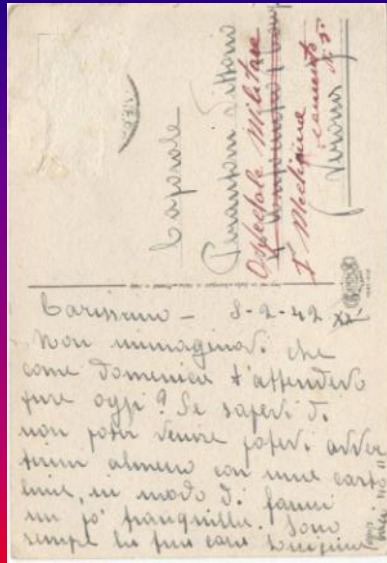 Caporale
Perantoni Vittorio
Ospedale Militare
I° Medicina
Verona
Carissimo - 8-2-42 XX
Non immaginavi che
come domenica t'attendevo
pure oggi? Se sapevi di
non poter venire potevi avver
tirmi almeno con una carto
lina, in modo di farmi
un po' tranquilla. Sono
sempre la tua cara